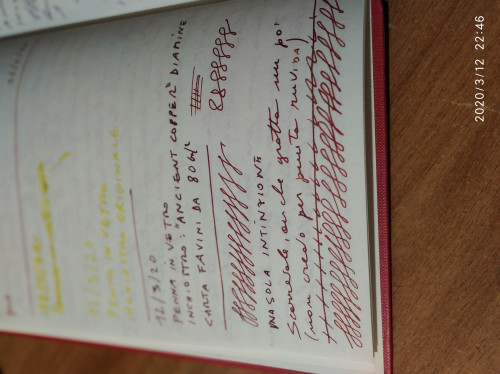 11/3/20
PENNA IN VETRO
INCHIOSTRO ORIGINALE
12/3/20
PENNA IN VETRO
INCHIOSTRO: "ANCIENT COPPER" DIAMINE
CARTA FAVINI DA 80
UNA SOLA INTINZIONE
Scorrevole, anche gratta un po'
(non credo per punta ruvida)
2020/3/12 22:46